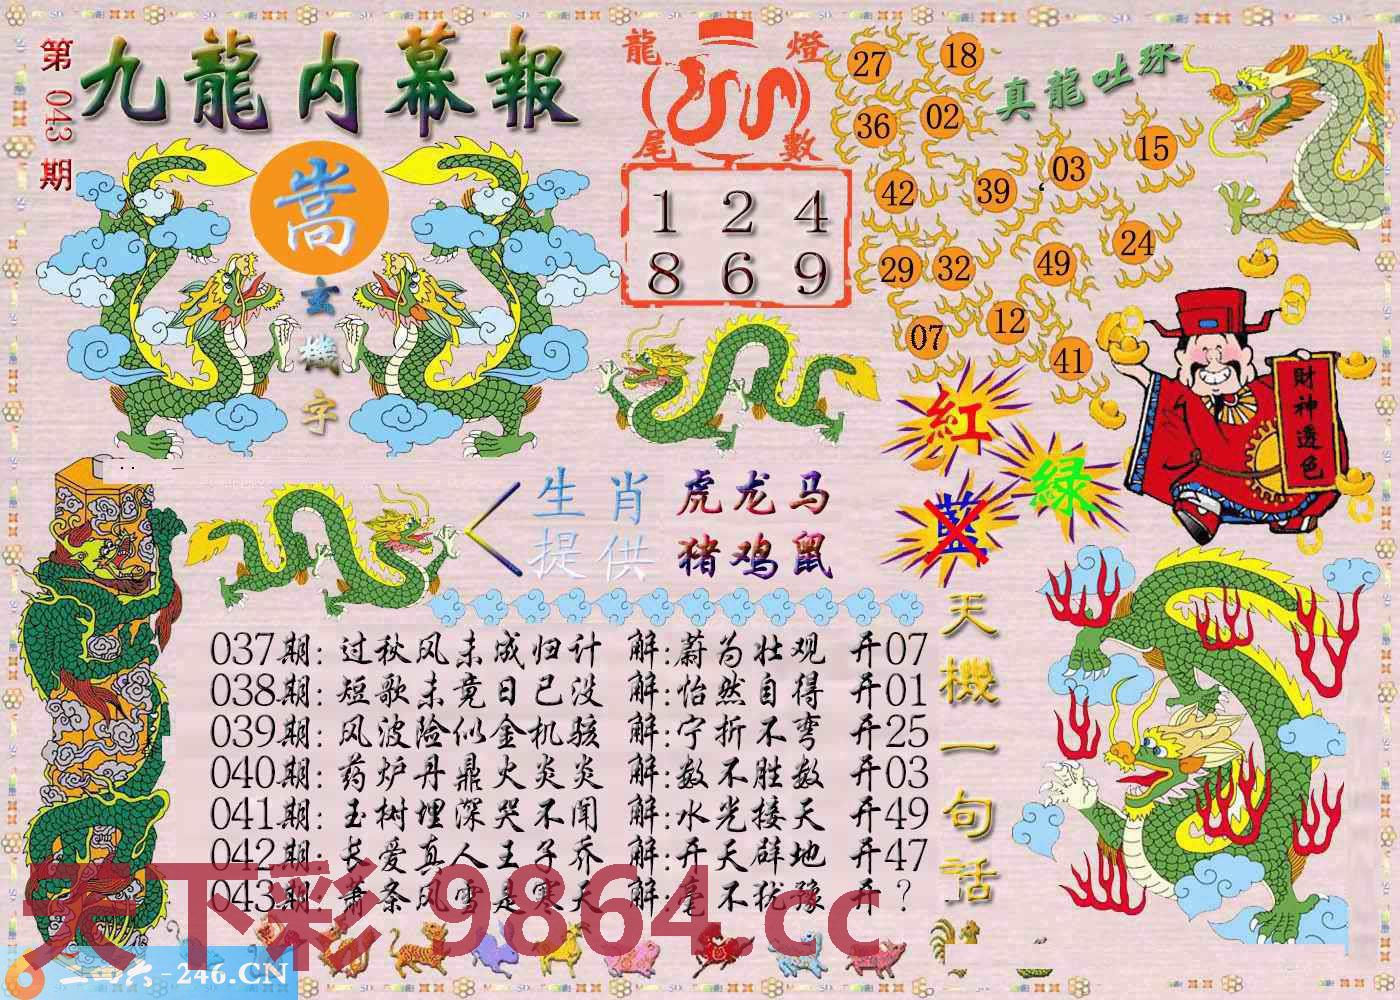 第 043 期
九龍内幕報
嵩
玄機字
龍 燈
尾 數
1 2 4
8 6 9
真龍吐珠
27 18
36 02
03 15
42 39
24
29 32 49
07 12
41
財神透色
紅
绿
藍
生肖 虎龙马
提供 猪鸡鼠
037期: 过秋风未成归计 解:蔚为壮观 开07
038期: 短歌未竟日已没 解:怡然自得 开01
039期: 风波险似金机骇 解:宁折不弯 开25
040期: 药炉丹鼎火炎炎 解:数不胜数 开03
041期: 玉树埋深哭不闻 解:水光接天 开49
042期: 长爱真人王子乔 解:开天辟地 开47
043期: 萧条风雪是寒天 解:毫不犹豫 开?
天機一句話
天下彩 9864.cc
二四六-246.CN